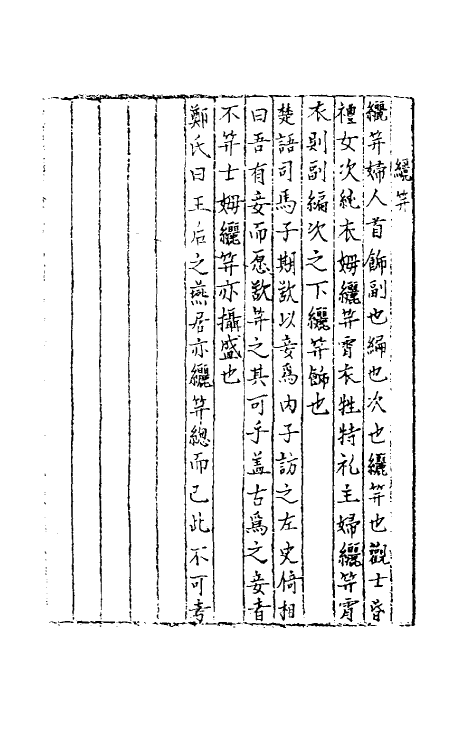 纚笄
纚笄婦人首飾副也編也次也纚笄也觀士昏
禮女次純衣姆纚笄宵衣牲特礼主婦纚笄宵
衣則副編次之下纚笄飾也
楚語司馬子期欲以妾爲内子訪之左史倚相
曰吾有妾而愿欲笄之其可乎盖古爲之妾者
不笄士姆纚笄亦攝盛也
鄭氏曰王后之燕居亦纚笄總而已此不可考